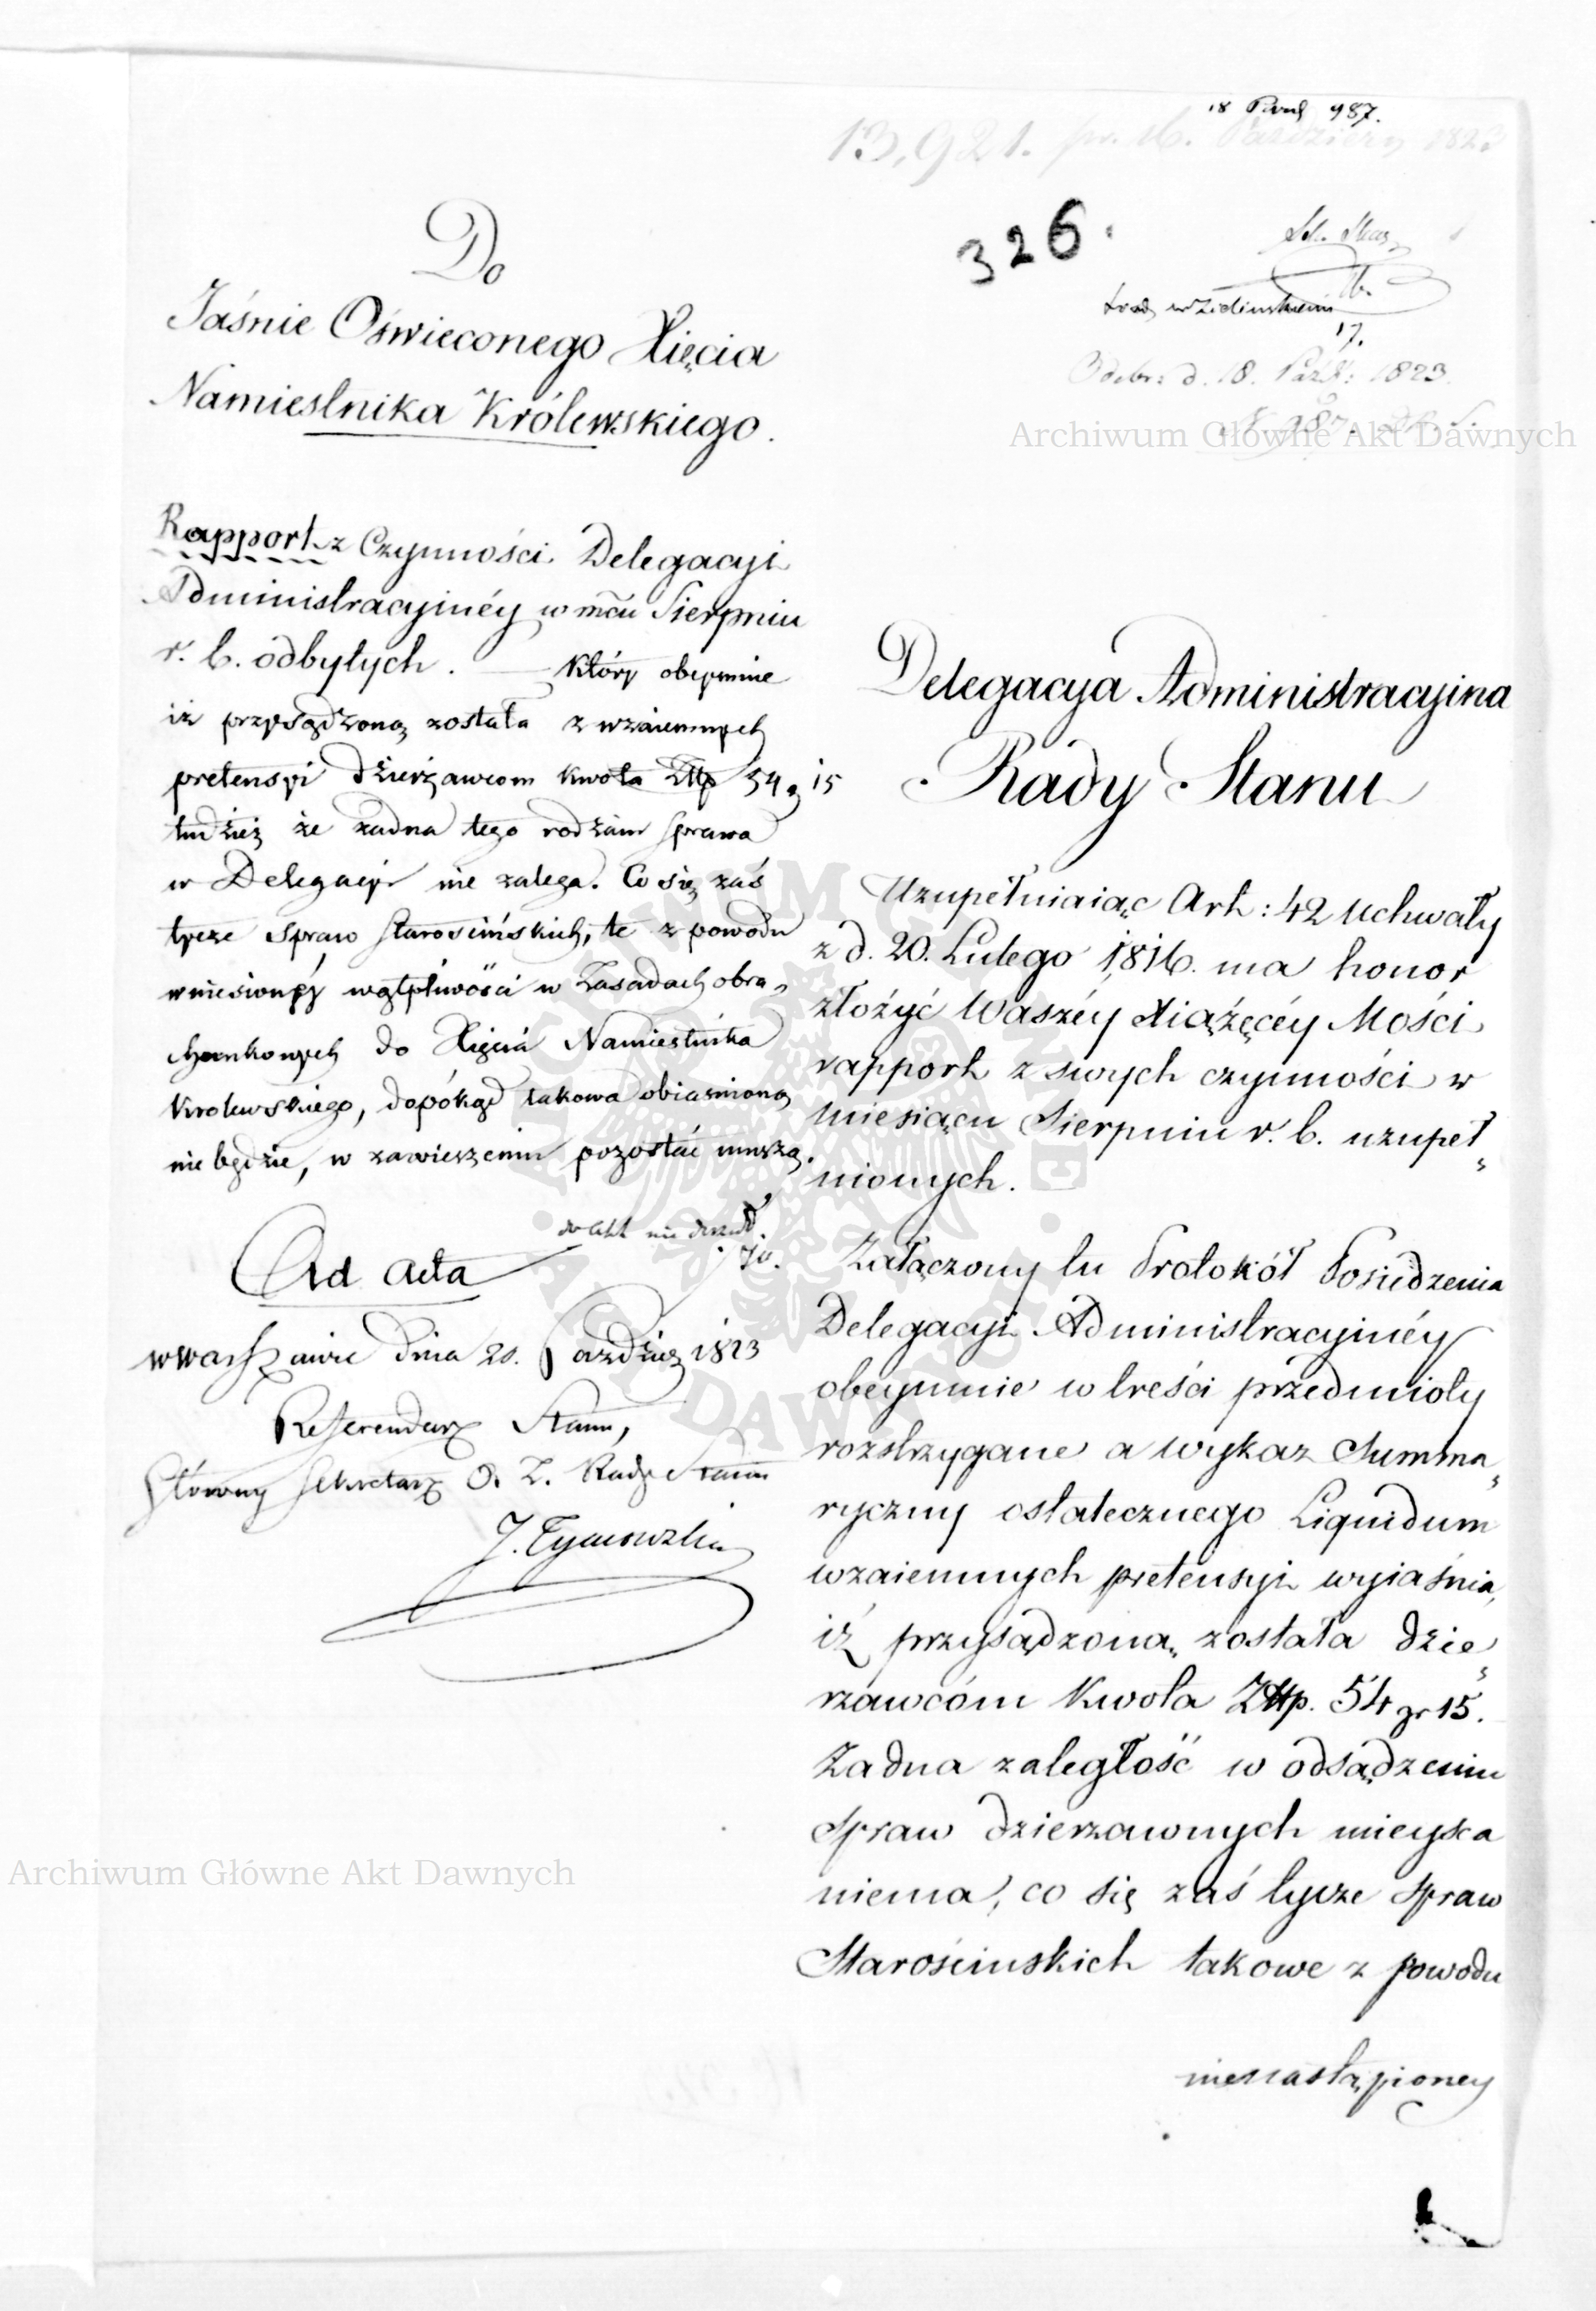 18 Paźd 987.
13,921. pr. 16. Październ 1823
326.
17.
Odebr: d. 18. Paźd: 1823.
N 987.
Archiwum Główne Akt Dawnych
Do
Jaśnie Oświeconego Xięcia
Namiestnika Królewskiego.
Rapport z Czynności Delegacyi
Administracyinéy w mcu Sierpniu
r. b. odbytych. — który obeymuie
iż przysądzoną została z wzaiemnych
pretensyi dzierżawcom kwota Złłp 54 g 15
tudzież że żadna tego rodzaiu sprawa
w Delegacyi nie zalega. Co się zaś
tycze Spraw Starościńskich, te z powodu
wniesionéy wątpliwości w Zasadach obra-
chunkowych do Xięcia Namiestnika
Krolewskiego, dopókąd takowa obiaśnioną
nie będzie, w zawieszeniu pozostać muszą.
do akt nie
Ad Acta
w Warszawie dnia 20. Paździer 1823
Referendarz Stanu,
Główny Sekretarz O. Z. Rady Stanu
J. Tymowski
Delegacya Administracyina
Rady Stanu
Uzupełniaiąc Art: 42 Uchwały
z d. 20. Lutego 1816. ma honor
złożyć Waszéy Xiążęcéy Mości
rapport z swych czynności w
Miesiącu Sierpniu r. b. uzupeł-
nionych.
Załączony tu Protokół Posiedzenia
Delegacyi Administracyinéy
obeymuie w treści przedmioty
rozstrzygane a wykaz Summa-
ryczny ostatecznego Liquidum
wzaiemnych pretensyi wyiaśnia,
iż przysądzoną została dzie-
rżawcóm Kwota Złłp. 54 gr 15.
Żadna zaległość w odsądzeniu
Spraw dzierzawnych mieysca
niema, co się zaś tycze Spraw
Starościnskich takowe z powodu
nienastąpioney
Archiwum Główne Akt Dawnych
ARCHIWUM GŁÓWNE · AKT DAWNYCH ·